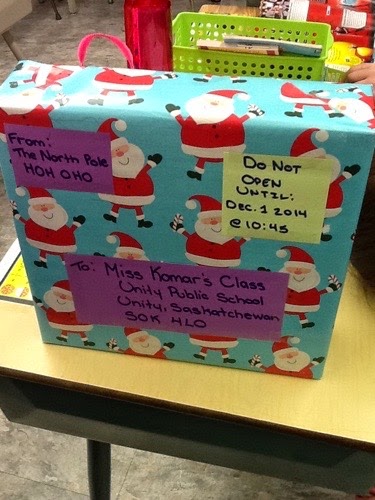 From:
The North Pole
HOH OHO
Do Not
Open
Until:
Dec. 1 2014
@ 10:45
To: Miss Komar's Class
Unity Public School
Unity, Saskatchewan
S0K 4L0